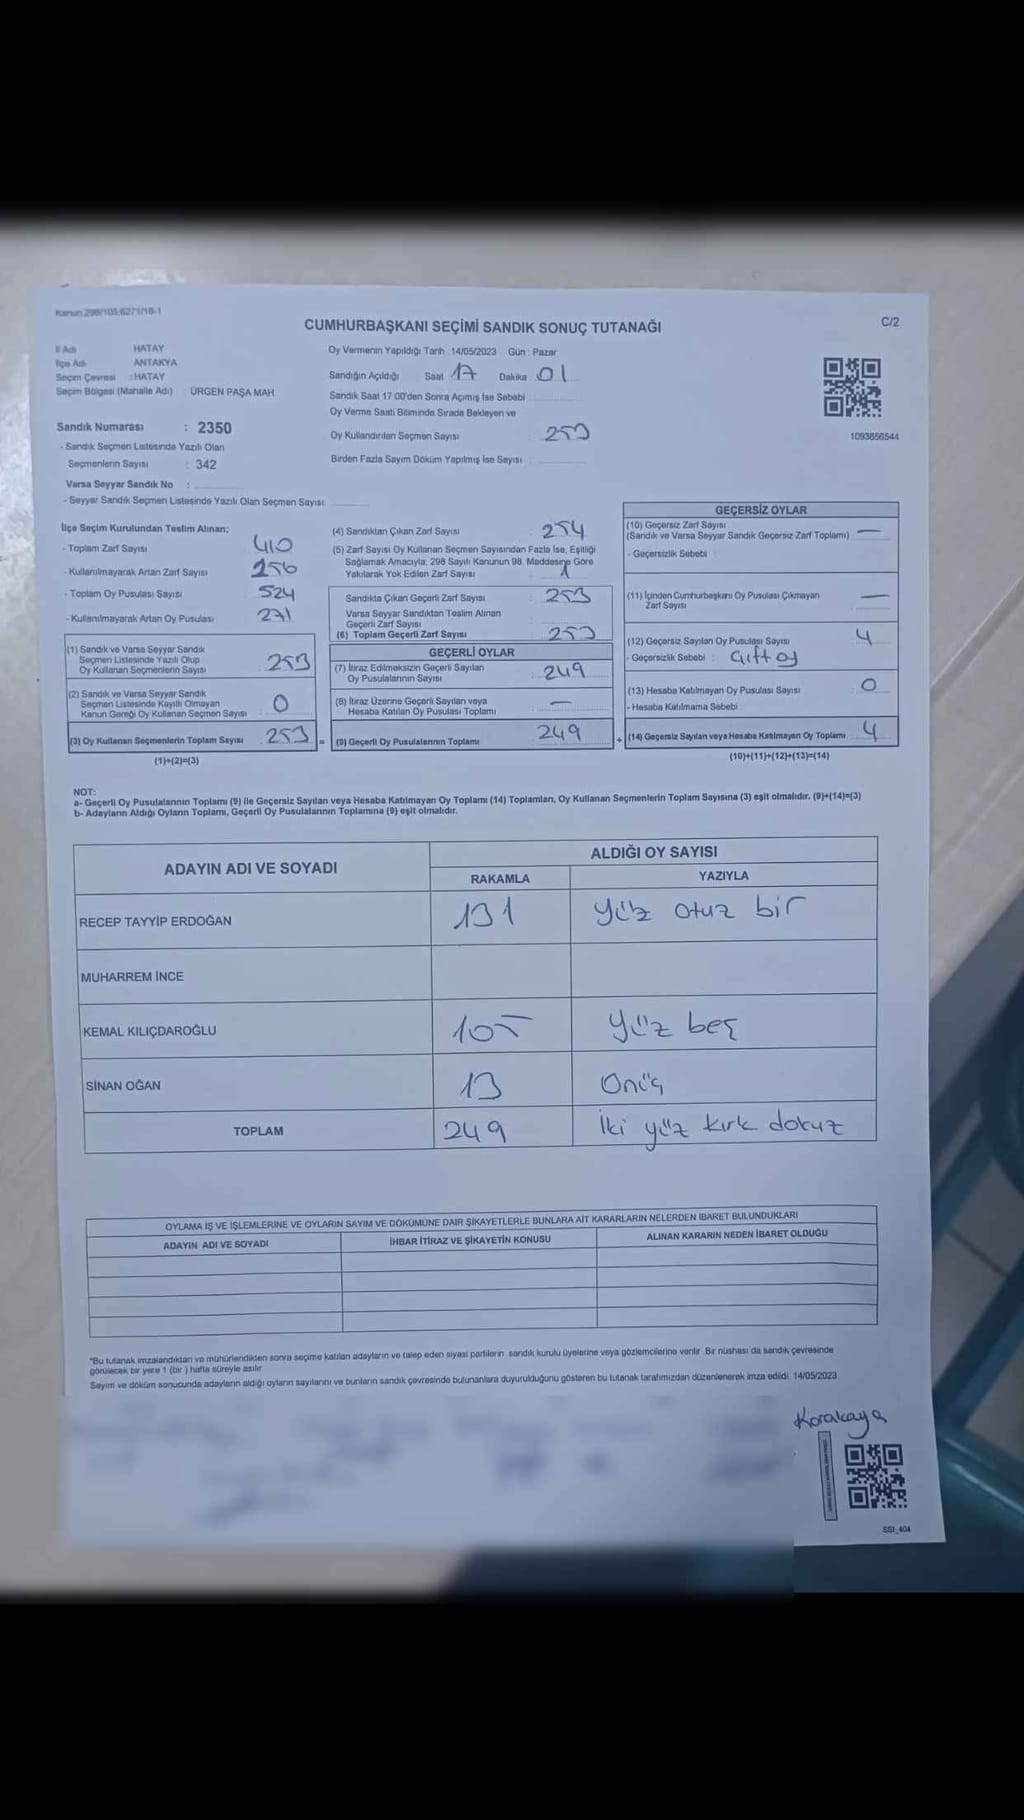 Kanun 298/105;6271/18-1
CUMHURBAŞKANI SEÇİMİ SANDIK SONUÇ TUTANAĞI
C/2
İl Adı HATAY
İlçe Adı ANTAKYA
Seçim Çevresi : HATAY
Seçim Bölgesi (Mahalle Adı) : ÜRGEN PAŞA MAH
Sandık Numarası : 2350
- Sandık Seçmen Listesinde Yazılı Olan
Seçmenlerin Sayısı : 342
Varsa Seyyar Sandık No :
- Seyyar Sandık Seçmen Listesinde Yazılı Olan Seçmen Sayısı
Oy Vermenin Yapıldığı Tarih : 14/05/2023 Gün : Pazar
Sandığın Açıldığı Saat 17 Dakika 01
Sandık Saat 17.00'den Sonra Açımış İse Sebebi
Oy Verme Saati Bitiminde Sırada Bekleyen ve
Oy Kullandırılan Seçmen Sayısı 253
Birden Fazla Sayım Döküm Yapılmış İse Sayısı :
1093656544
İlçe Seçim Kurulundan Teslim Alınan;
- Toplam Zarf Sayısı 410
- Kullanılmayarak Artan Zarf Sayısı 156
- Toplam Oy Pusulası Sayısı 524
- Kullanılmayarak Artan Oy Pusulası 271
(1) Sandık ve Varsa Seyyar Sandık
Seçmen Listesinde Yazılı Olup
Oy Kullanan Seçmenlerin Sayısı 253
(2) Sandık ve Varsa Seyyar Sandık
Seçmen Listesinde Kayıtlı Olmayan
Kanun Gereği Oy Kullanan Seçmen Sayısı 0
(3) Oy Kullanan Seçmenlerin Toplam Sayısı 253 =
(1)+(2)=(3)
(4) Sandıktan Çıkan Zarf Sayısı 254
(5) Zarf Sayısı Oy Kullanan Seçmen Sayısından Fazla İse, Eşitliği
Sağlamak Amacıyla; 298 Sayılı Kanunun 98. Maddesine Göre
Yakılarak Yok Edilen Zarf Sayısı 1
Sandıkta Çıkan Geçerli Zarf Sayısı 253
Varsa Seyyar Sandıktan Teslim Alınan
Geçerli Zarf Sayısı
(6) Toplam Geçerli Zarf Sayısı 253
GEÇERLİ OYLAR
(7) İtiraz Edilmeksizin Geçerli Sayılan
Oy Pusulalarının Sayısı 249
(8) İtiraz Üzerine Geçerli Sayılan veya
Hesaba Katılan Oy Pusulası Toplamı —
(9) Geçerli Oy Pusulalarının Toplamı 249 +
GEÇERSİZ OYLAR
(10) Geçersiz Zarf Sayısı
(Sandık ve Varsa Seyyar Sandık Geçersiz Zarf Toplamı) —
- Geçersizlik Sebebi
(11) İçinden Cumhurbaşkanı Oy Pusulası Çıkmayan
Zarf Sayısı —
(12) Geçersiz Sayılan Oy Pusulası Sayısı 4
- Geçersizlik Sebebi : Çift oy
(13) Hesaba Katılmayan Oy Pusulası Sayısı 0
- Hesaba Katılmama Sebebi
(14) Geçersiz Sayılan veya Hesaba Katılmayan Oy Toplamı 4
(10)+(11)+(12)+(13)=(14)
NOT:
a- Geçerli Oy Pusulalarının Toplamı (9) ile Geçersiz Sayılan veya Hesaba Katılmayan Oy Toplamı (14) Toplamları, Oy Kullanan Seçmenlerin Toplam Sayısına (3) eşit olmalıdır. (9)+(14)=(3)
b- Adayların Aldığı Oyların Toplamı, Geçerli Oy Pusulalarının Toplamına (9) eşit olmalıdır.
ADAYIN ADI VE SOYADI
ALDIĞI OY SAYISI
RAKAMLA YAZIYLA
RECEP TAYYİP ERDOĞAN 131 Yüz otuz bir
MUHARREM İNCE
KEMAL KILIÇDAROĞLU 105 Yüz beş
SİNAN OĞAN 13 Onüç
TOPLAM 249 İki yüz kırk dokuz
OYLAMA İŞ VE İŞLEMLERİNE VE OYLARIN SAYIM VE DÖKÜMÜNE DAİR ŞİKAYETLERLE BUNLARA AİT KARARLARIN NELERDEN İBARET BULUNDUKLARI
ADAYIN ADI VE SOYADI İHBAR İTİRAZ VE ŞİKAYETİN KONUSU ALINAN KARARIN NEDEN İBARET OLDUĞU
"Bu tutanak imzalandıktan ve mühürlendikten sonra seçime katılan adayların ve talep eden siyasi partilerin sandık kurulu üyelerine veya gözlemcilerine verilir. Bir nüshası da sandık çevresinde
görülecek bir yere 1 (bir ) hafta süreyle asılır
Sayım ve döküm sonucunda adayların aldığı oyların sayılarını ve bunların sandık çevresinde bulunanlara duyurulduğunu gösteren bu tutanak tarafımızdan düzenlenerek imza edildi. 14/05/2023
Karakaya
SSI_404